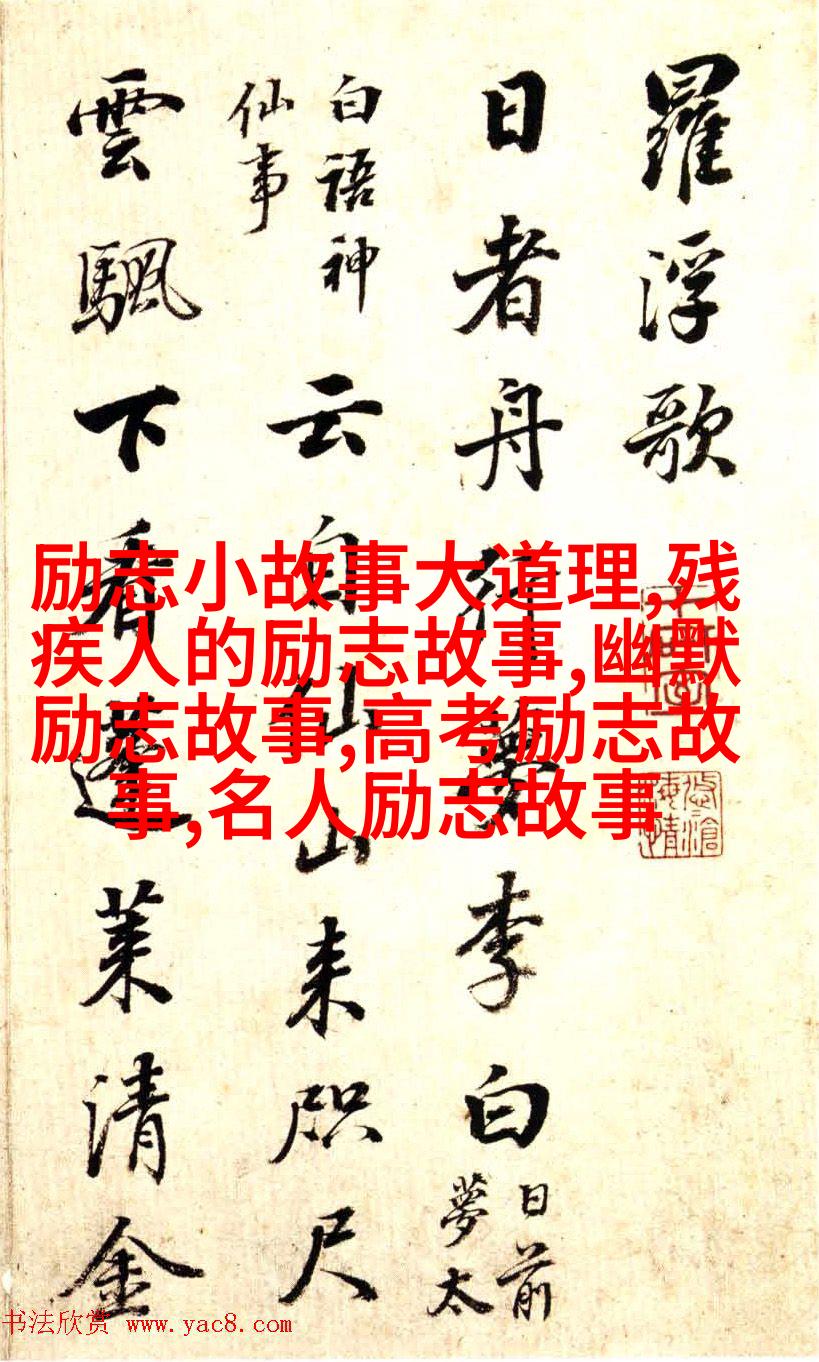 羅浮歌
日者舟
李白日前
夢太
白語神
仙事
云自仙山来咫尺
雲颿下看蓬莱清金
励志小故事大道理,残
疾人的励志故事,幽默
励志故事,高考励志故
事,名人励志故事
书法欣赏 www.yac8.com